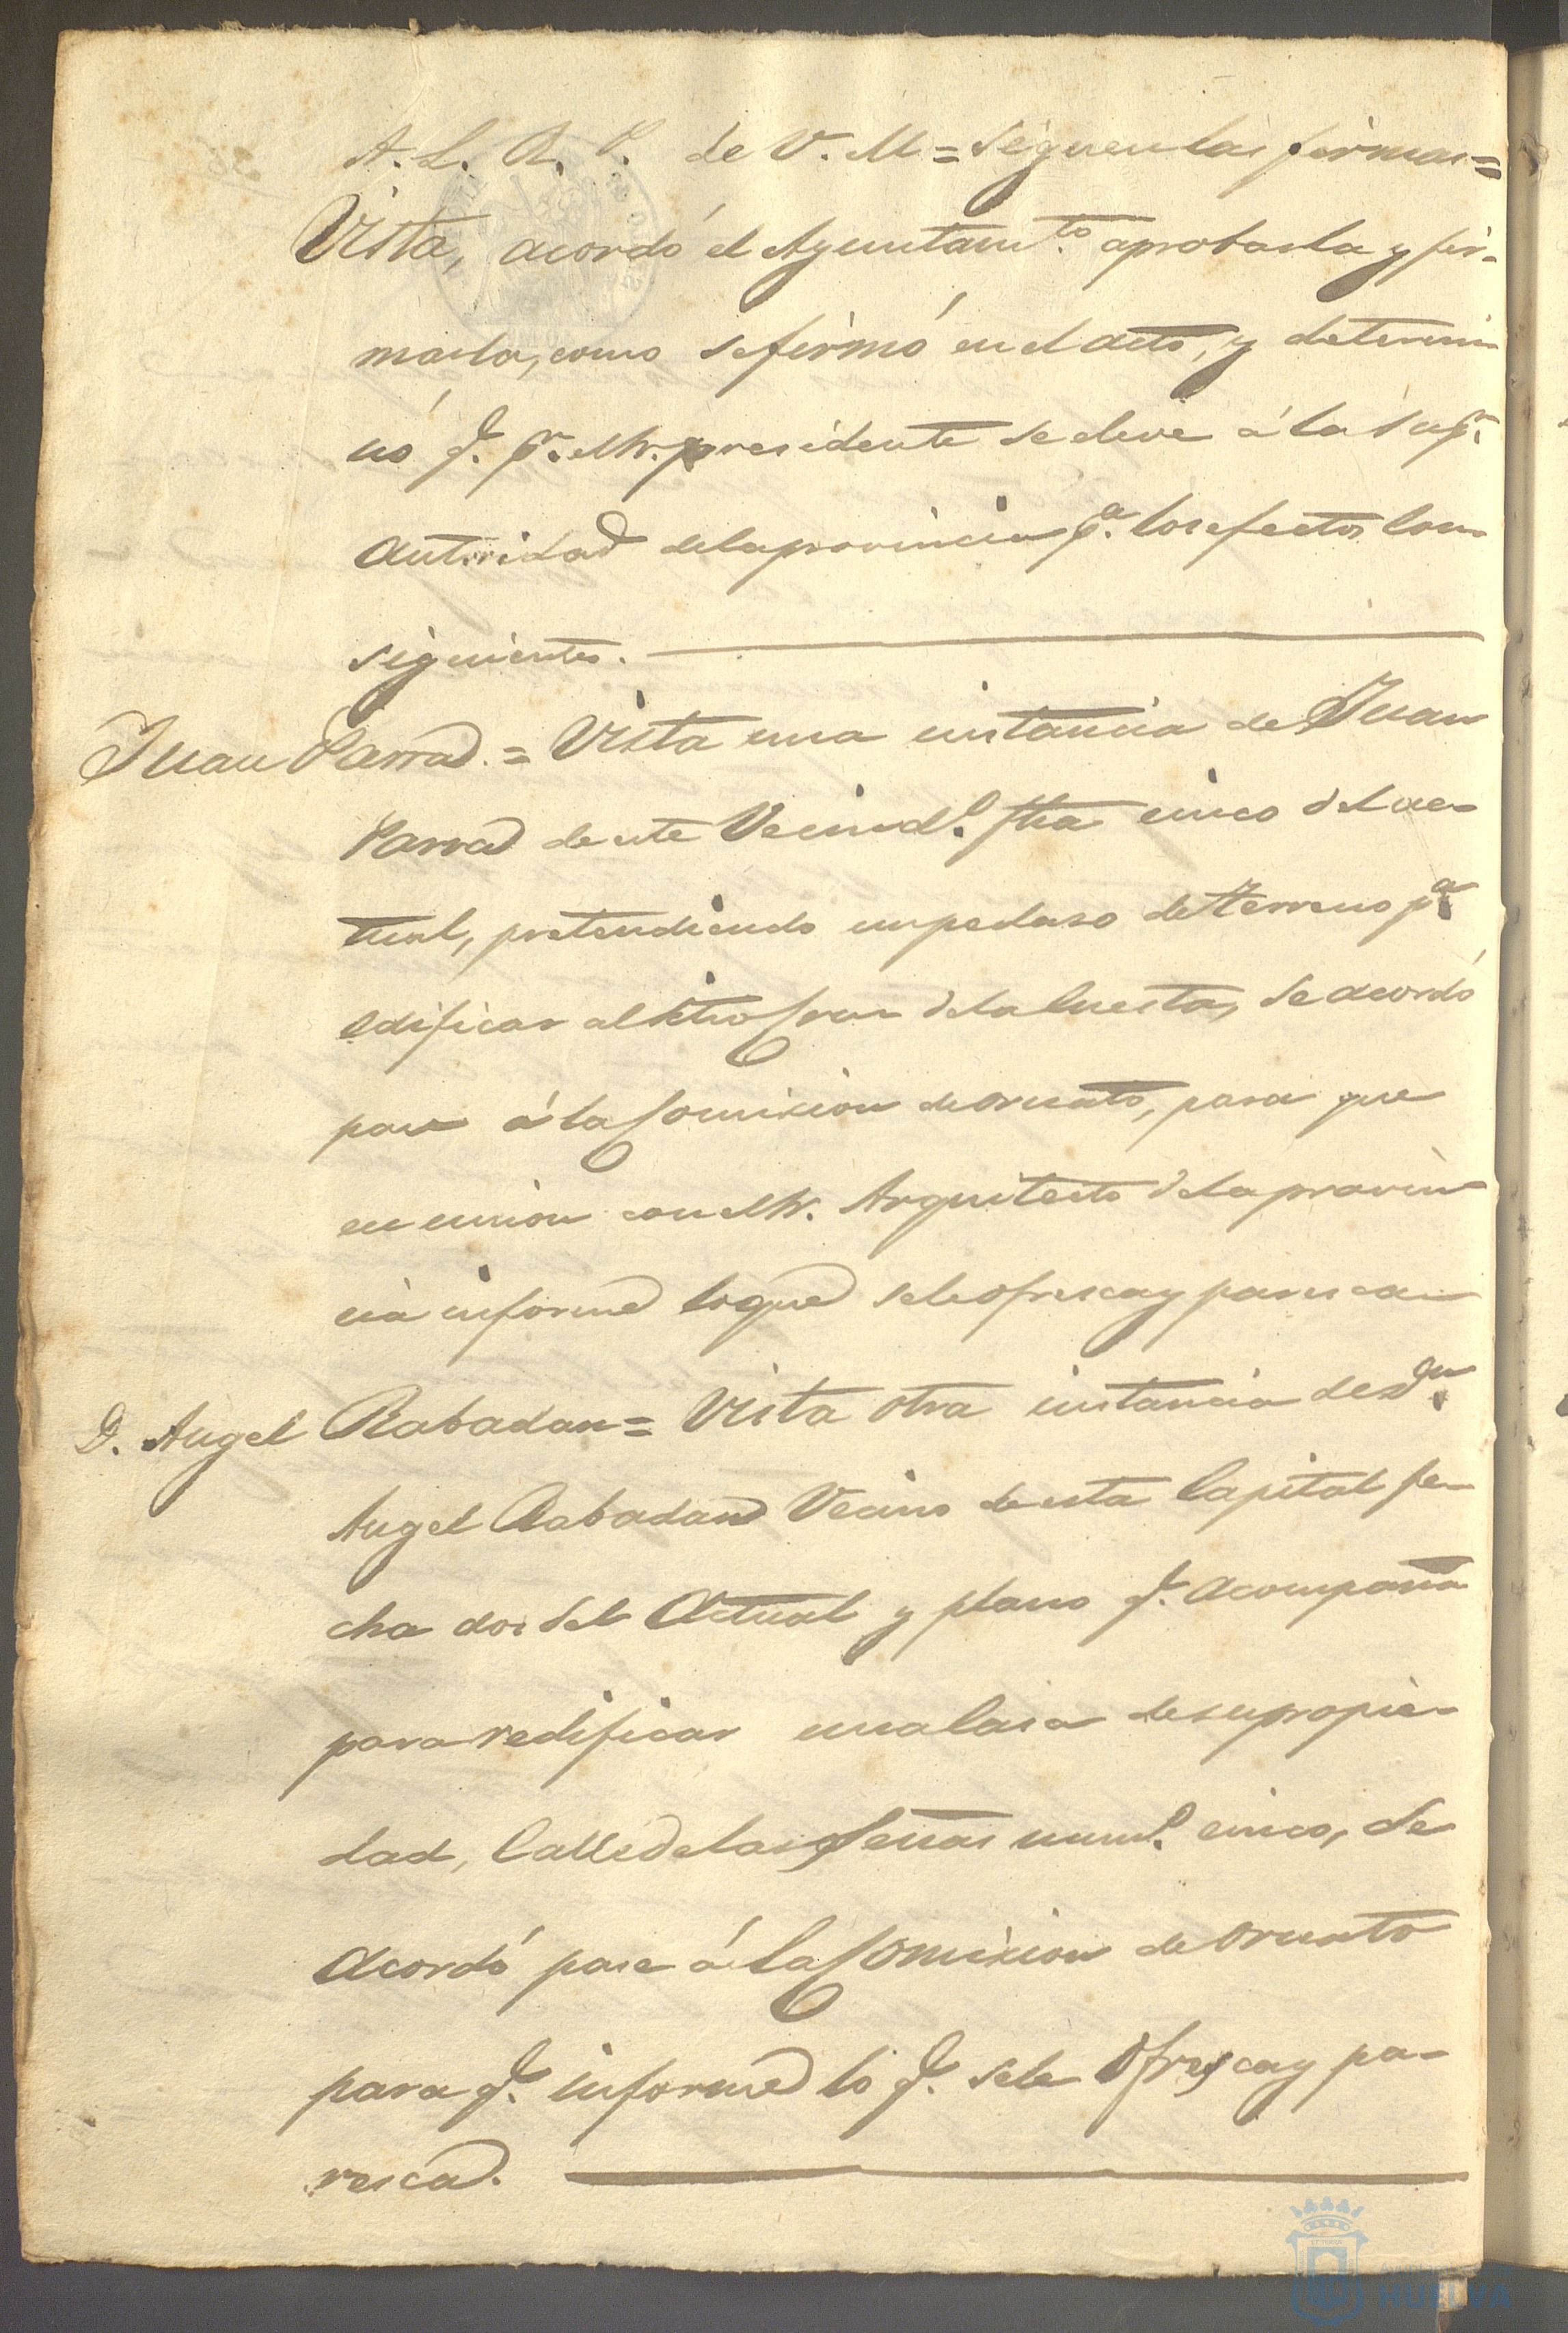 A. L. R. P. de V. M = Siguen las firmas =
Vista, acordó el Ayuntamto. aprobarla y fir-
marla, como se firmó en el acto, y determi-
nó q. pr. el Sr. presidente se eleve á la Supr.
Autoridad de la provincia pa. los efectos con-
siguientes.
Juan Parra. = Vista una instancia de Juan
Parra de este Vecindo. fha cinco del ac-
tual, pretendiendo un pedaso de terreno pa.
edificar al sitio de la Cuesta, se acordó
pase á la Comision de ornato, para que
en union con el Sr. Arquitecto de la provin-
cia informe lo que se le ofresca y paresca
D. Angel Rabadan = Vista otra instancia de Dn.
Angel Rabadan Vecino de esta Capital fe-
cha dos del Actual y plano q. acompaña
para redificar una Casa de su propie-
dad, Calle de las numo. cinco, se
Acordó pase á la Comision de ornato
para q. informe lo q. se le ofresca y pa-
resca.
HUELVA